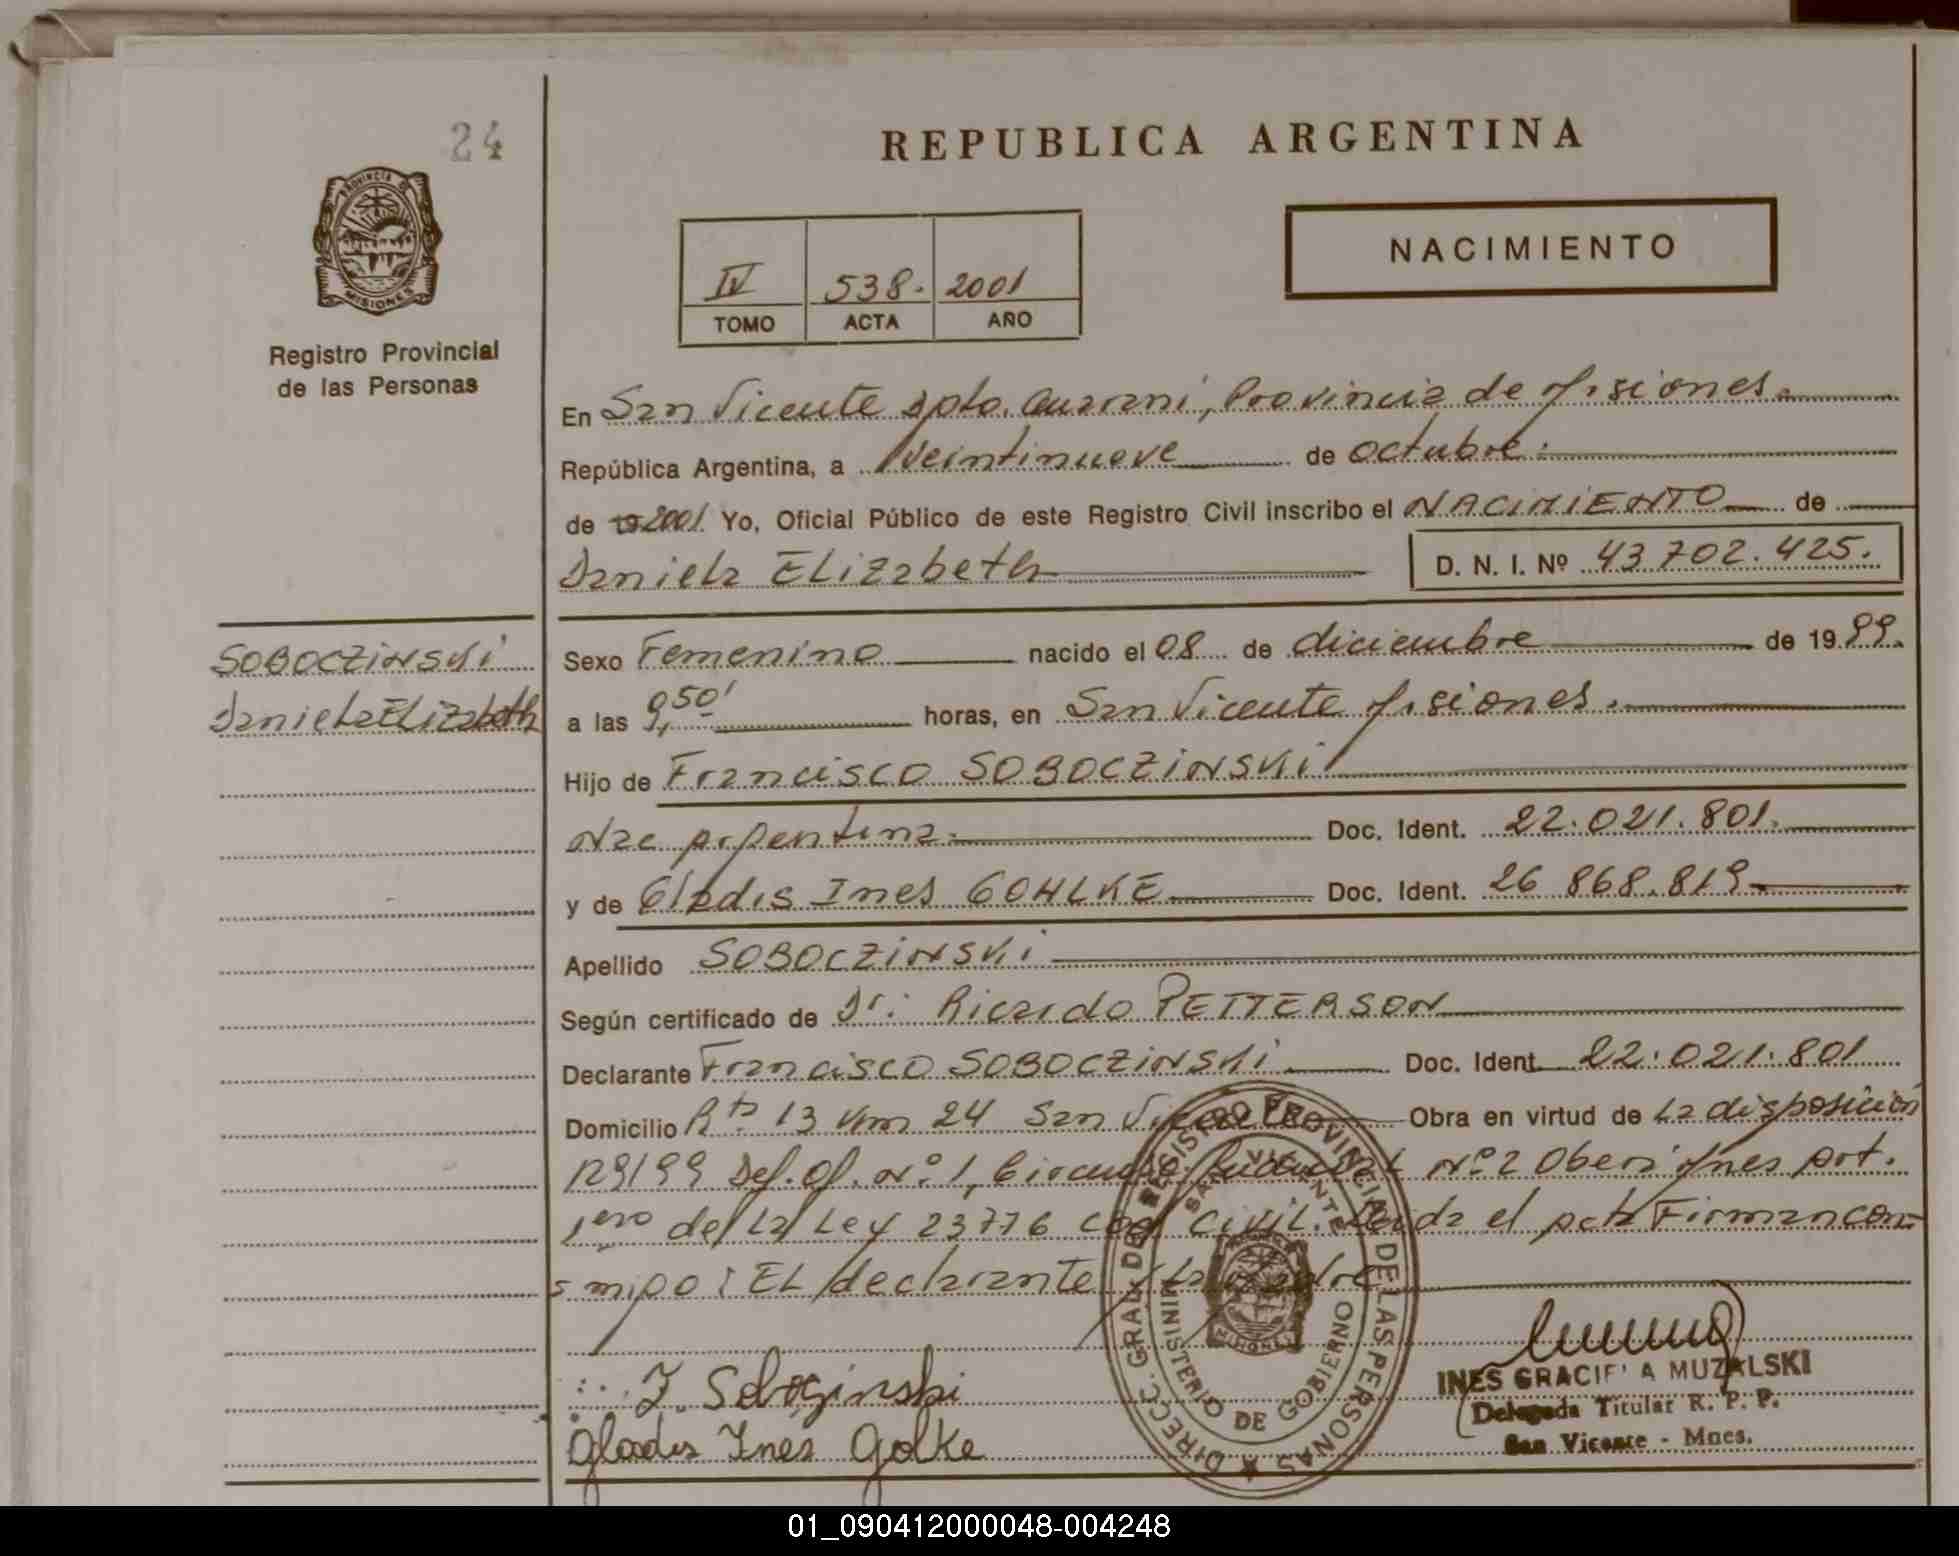 24
PROVINCIA DE
MISIONES
Registro Provincial
de las Personas
REPUBLICA ARGENTINA
NACIMIENTO
IV 538. 2001
TOMO ACTA AÑO
En San Vicente Dpto. Guarani, Provincia de Misiones.
República Argentina, a Veintinueve de octubre.
de 19 2001. Yo, Oficial Público de este Registro Civil inscribo el NACIMIENTO de
Daniela Elizabeth D. N. I. Nº 43 702.425.
SOBOCZINSKI
Daniela Elizabeth
Sexo Femenino nacido el 08 de diciembre de 19 99.
a las 9,50' horas, en San Vicente Misiones.
Hijo de Francisco SOBOCZINSKI
Nac Argentina. Doc. Ident. 22.021.801.
y de Gladis Ines GOHLKE Doc. Ident. 26 868.819
Apellido SOBOCZINSKI
Según certificado de Dr. Ricardo PETTERSON
Declarante Francisco SOBOCZINSKI Doc. Ident. 22.021.801
Domicilio Rta 13 Km 24 San Vicente Obra en virtud de La disposición
129/99 Def. Of. Nº 1, Circuns. Judicial Nº 2 Obera Mnes Art.
1ero de La Ley 23776 Cod Civil. Leida el acta Firman con
migo: EL declarante y La madre
F. Soboginski
Gladis Ines Golke
DIRECC. GRAL. DE REGISTRO PROVINCIAL DE LAS PERSONAS
SAN VICENTE
MINISTERIO DE GOBIERNO
MISIONES
INES GRACIELA MUZALSKI
Delegada Titular R. P. P.
San Vicente - Mnes.
01_090412000048-004248